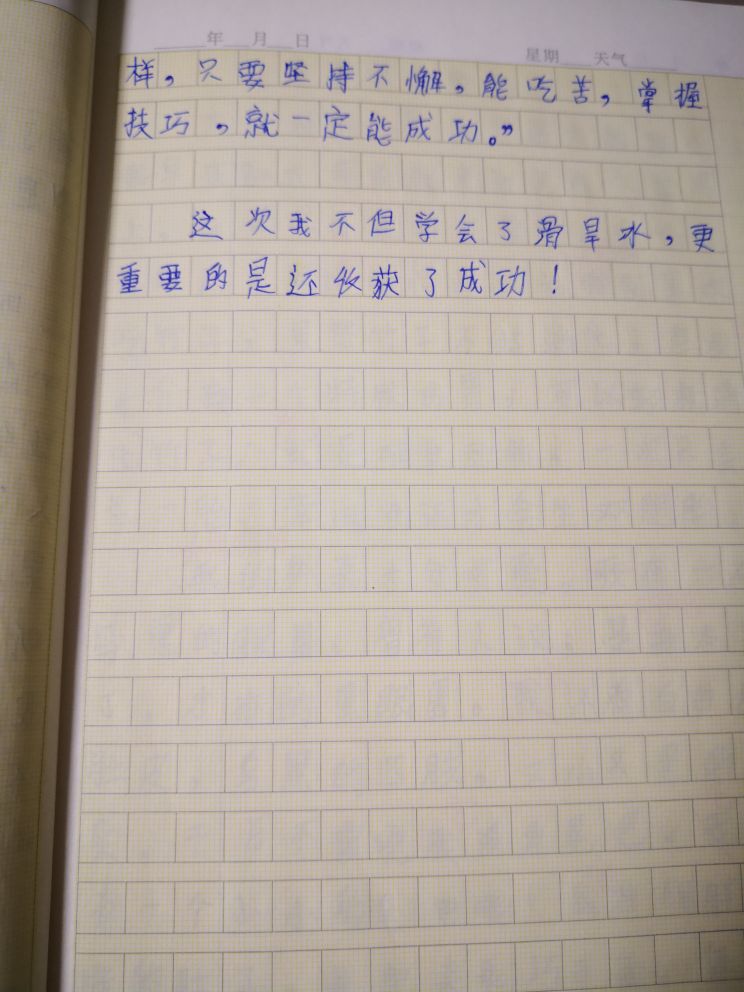 年 月 日
星期 天气
样，只要坚持不懈，能吃苦，掌握
技巧，就一定能成功。”
这次我不但学会了滑旱水，更
重要的是还收获了成功！